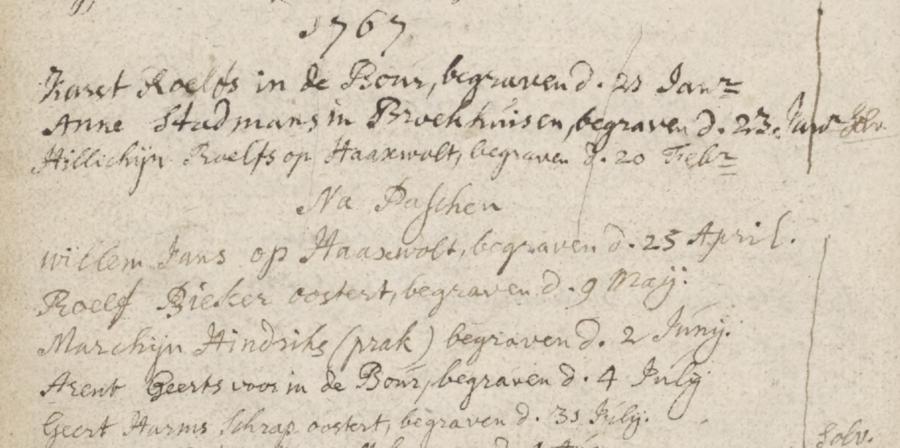 1767
Karst Roelfs in de Bour, begraven d. 21 Janr
Anne Stadmans in Broekhuisen, begraven d. 23. Janr Solv.
Hillichijn Roelfs op Haaxwolt, begraven d. 20 Febr
Na Paschen
willem Jans op Haaxwolt, begraven d. 25 April.
Roelf Bieker oostert, begraven d. 9 Maij.
Marchijn Hindriks (prak) begraven d. 2 Junij.
Arent Geerts voor in de Bour, begraven d. 4 Julij
Geert Harms Schrap oostert, begraven d. 31 Julij.
Solv.